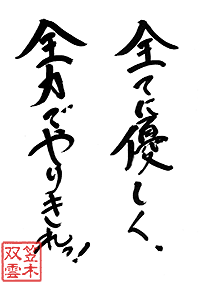 全てに優しく、
全力でやりきれっ!
笠木
双雲